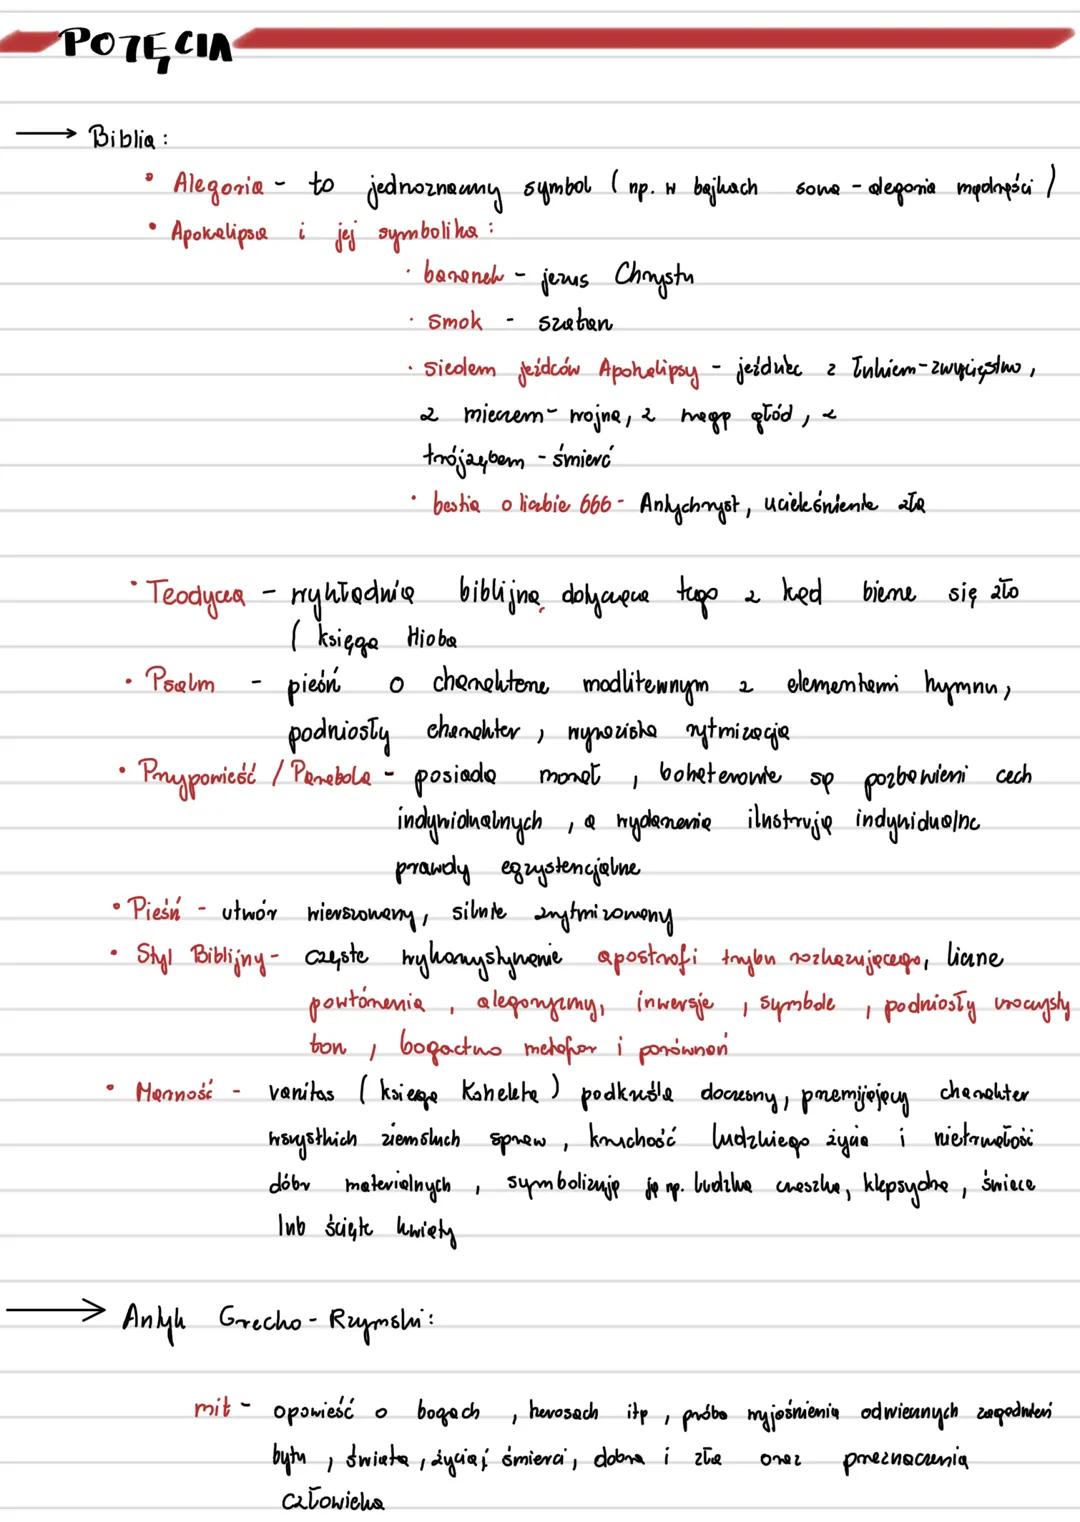 POJĘCIA
→ Biblia:
• Alegoria - to jednoznaczny symbol ( np. w bajkach sowa - alegoria mądrości )
• Apokalipsa i jej symbolika:
· baranek - jezus Chrystu
· smok - szatan
· siedem jeźdców Apokalipsy - jeździec z łukiem - zwycięstwo,
z mieczem - wojna, z wagą głód, z
trójzębem - śmierć
· bestia o liczbie 666 - Antychryst, ucieleśnienie zła
• Teodycea - wykładnia biblijna dotycząca tego z kąd bierze się zło
( księga Hioba
• Psalm - pieśń o charakterze modlitewnym z elementami hymnu,
podniosły charakter, wyrazista rytmizacja
• Przypowieść / Parabola - posiada morał, bohaterowie są pozbawieni cech
indywidualnych, a wydarzenia ilustrują indywidualne
prawdy egzystencjalne
• Pieśń - utwór wierszowany, silnie zrytmizowany
• Styl Biblijny - częste wykorzystywanie apostrofi trybu rozkazującego, liczne
powtórzenia, alegoryzmy, inwersje, symbole, podniosły uroczysty
ton, bogactwo metafor i porównań
• Marność - vanitas ( księga Koheleta ) podkreśla doczesny, przemijający charakter
wszystkich ziemskich spraw, kruchość ludzkiego życia i nietrwałości
dóbr materialnych, symbolizują ją np. ludzka czaszka, klepsydra, świeca
lub ścięte kwiaty
→ Antyk Grecko - Rzymski:
mit - opowieść o bogach, herosach itp, próba wyjaśnienia odwiecznych zagadnień
bytu, świata, życia i śmierci, dobra i zła oraz przeznaczenia
człowieka